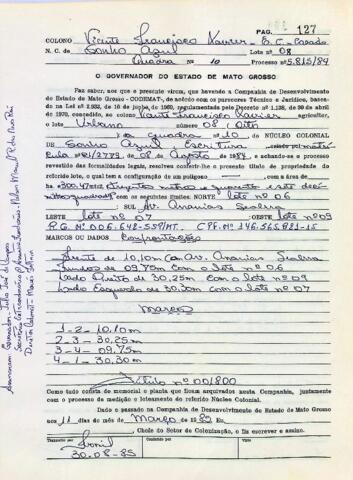 PAG. 127
COLONO Vicente Francisco Xavier - E. C. Casado
N. C. de Sonho Azul Lote nº 08
Quadra nº 10 Processo nº 5.815/84
O GOVERNADOR DO ESTADO DE MATO GROSSO
Faz saber, aos que o presente virem, que havendo a Companhia de Desenvolvimento
do Estado de Mato Grosso - CODEMAT-, de acordo com os pareceres Técnico e Jurídico, basea-
da na Lei nº 2.922, de 16 de junho de 1969, regulamentada pelo Decreto nº 1.138, de 30 de abril
de 1970, concedido, ao colono Vicente Francisco Xavier agricultor,
o lote Urbano número 08 (oito)
da quadra nº 10 NÚCLEO COLONIAL
de Sonho Azul Escritura
cula nº 21/2779, de 08 de Agosto de 1984 e achando-se o processo
revestido das formalidades legais, resolveu conferir-lhe o presente título de propriedade do
referido lote, o qual tem a configuração de um polígono
ha = 300.47 m2 (trezentos metros e quarenta e sete deci
metros quadrados) com os seguintes limites NORTE lote nº 06
SUL Av. Ananias
LESTE lote nº 07 OESTE lote nº 09
R.G. nº 006.642-559/MT. CPF. nº 346.565.821-15
MARCOS OU DADOS Confrontações
Frente de 10,10m c/ Av. Ananias
Fundos de 09.75m com o lote nº 06
Lado Direito de 30,25m com o lote nº 09
Lado Esquerdo de 30,30m com o lote nº 07
Marcos
1 - 2 - 10,10m
2 - 3 - 30,25m
3 - 4 - 09.75m
4 - 1 - 30,30m
Título nº 00/800
Como tudo consta de memorial e planta que ficam arquivados nesta Companhia, juntamente
com o processo de medição e loteamento do referido Núcleo Colonial.
Dado e passado na Companhia de Desenvolvimento do Estado de Mato Grosso
aos 11 dias do mês de Março de 1985 Eu
Chefe do Setor de Colonização, o fiz escrever e assino.
Transcrito por
Conferido por
Visto
30-08-85